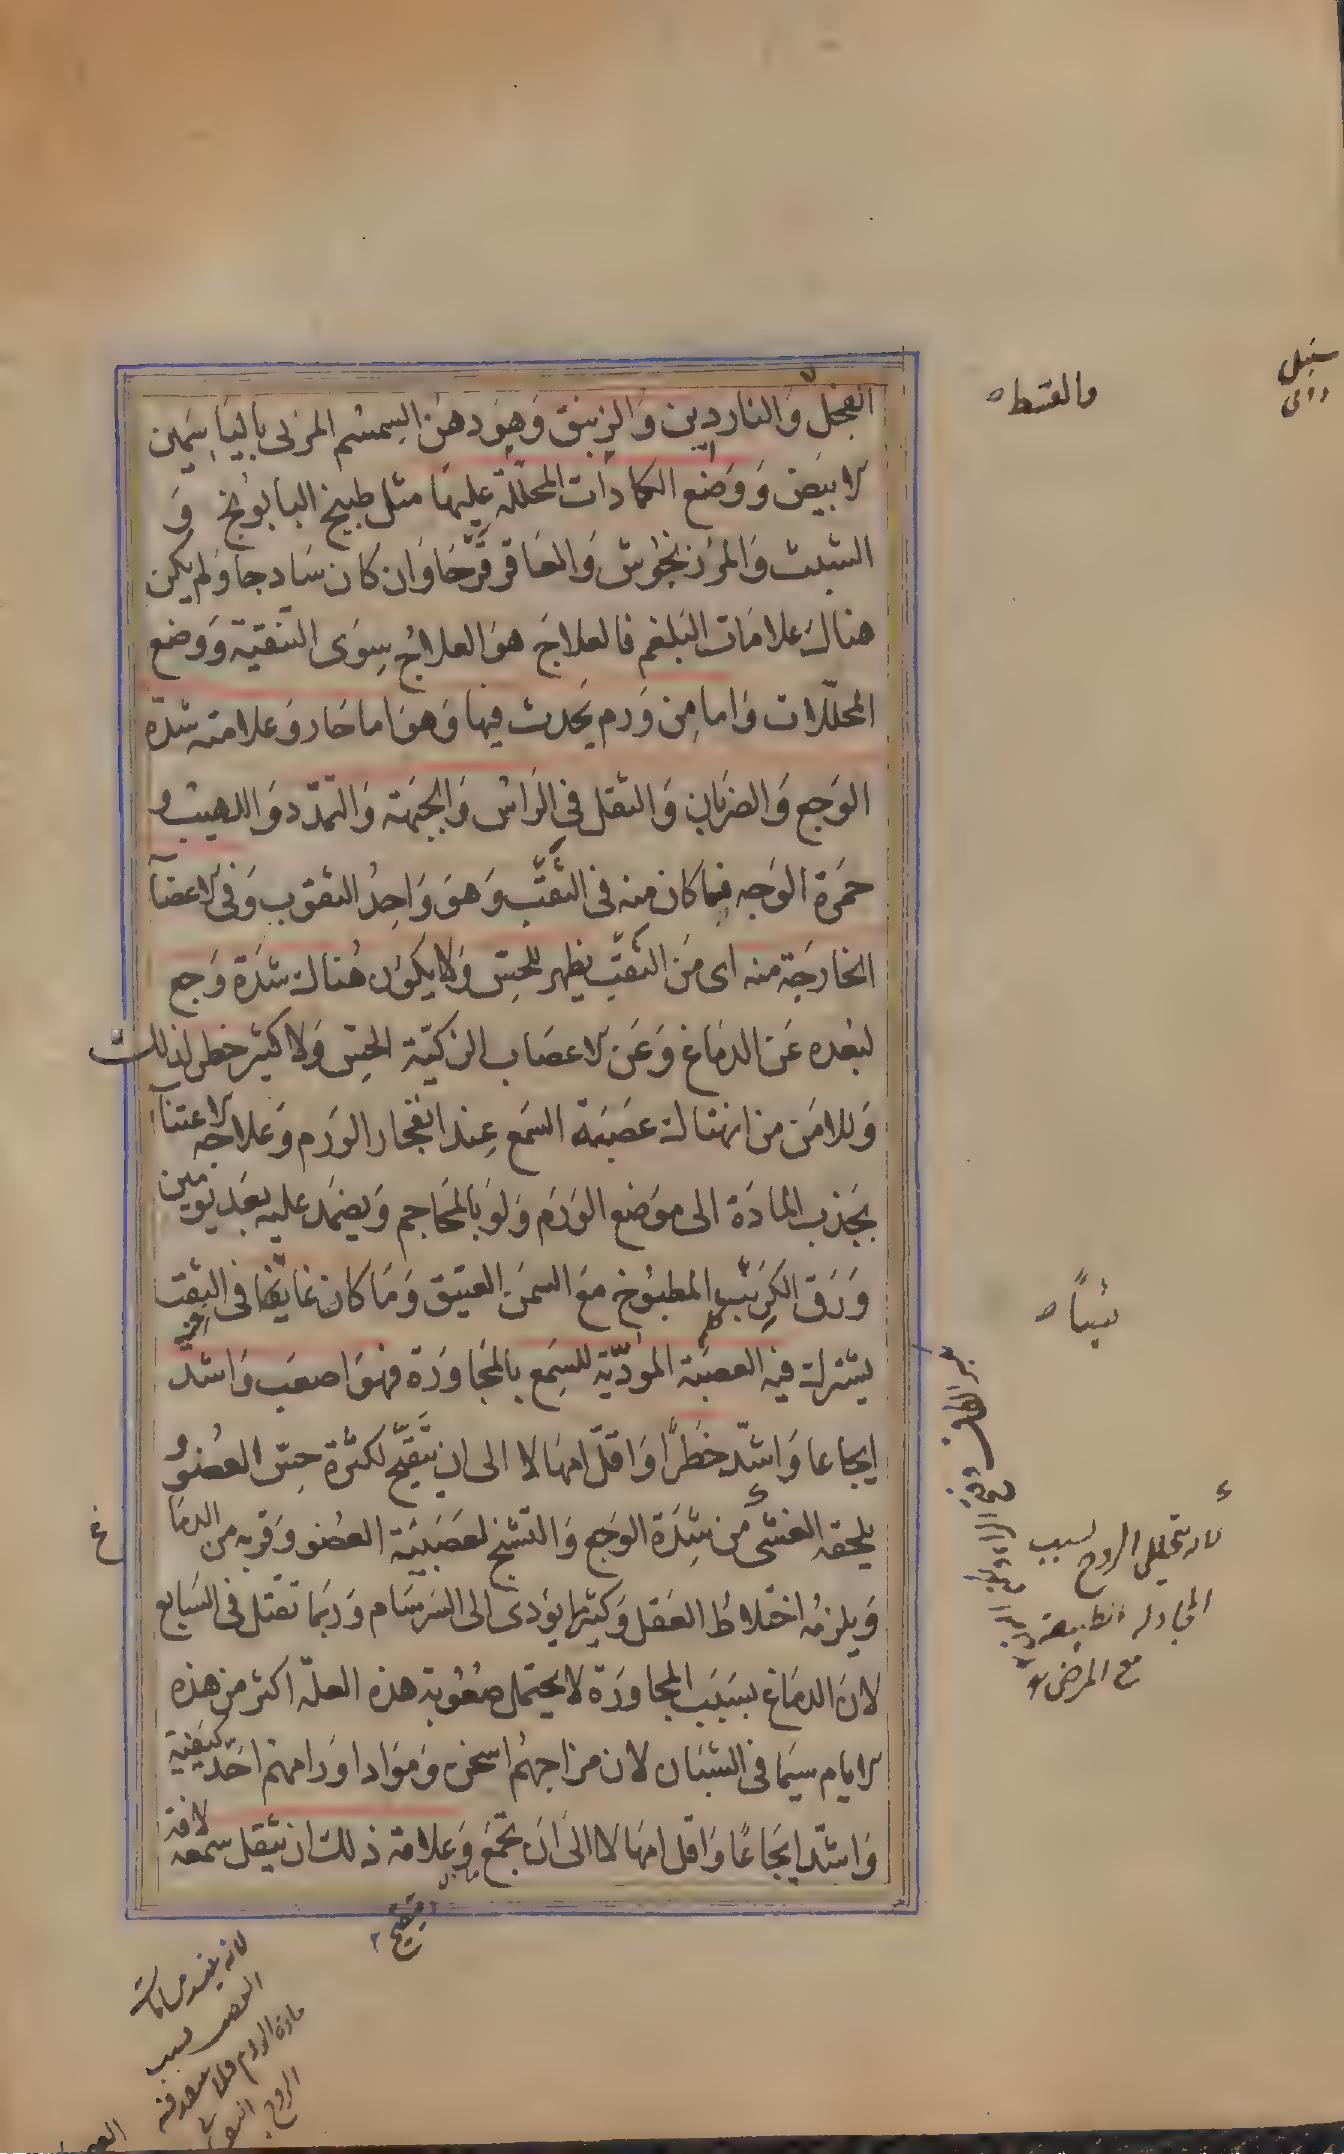 الفجل وَالناردين وَالزنبق وَهوَ دهن السِمسُم المربى باليَاسَمين
الابيَض وَوَضع الكمادَات المحلّلة عليهَا مثل طبيخ البابوُنج وَ
الشبث وَالمرَزنجوُش وَالعَاقرقَرحَا وَان كانَ سَادجا وَلم يكن
هناك علامَات البَلغم فالعلاجَ هوَ العلاجُ سِوَى التنقية وَوضع
المحلّلات وَاما مِن وَرم يحَدث فيها وَهوَ اما حَار وَعلامته شدّة
الوَجع وَالضرَبان وَالثقل في الرَاس وَالجَبهَة وَالتمدّد وَاللهيب و
حمرَة الوَجه فما كان منه في الثقب وَهوَ وَاحِدُ الثقوب وَفي الاعضآ
الخارجَة منه اى منَ الثقب يظهر للحِسّ وَلا يكوُن هُناك شدَة وَجع
لبُعده عَن الدمَاغ وَعَن الاعصَاب الزكيّة الحِسّ وَلا كثير خطر لذلك
وَللامَن من انهتاك عصَبَة السَمع عِند انفجار الورَم وَعلاجَه الاعتنآ
بجَذب المادَة الى موَضع الوَرَم وَلوَ بالمحَاجم وَيضمَد عليه بعَد يوَمين
وَرَق الكرنب المطبوُخ معَ السمن العتيق وَمَا كان غايصًا في الثقب
يشترك فيه العصَبَة الموُدّية للسِمع بالمجَاورَة فهوَ اصعَب وَاشدّ
ايجاعا وَاشدّ خطَرًا وَاقلّ امهَالا الى ان يتقيّح لكثرَة حِسّ العُضو و
يلحقه الغشى من شِدَة الوَجع وَالتشنج لعَصَبيَة العضو وَقربه من الدمَا
غ
وَيلزمُه اختلاط العَقل وَكثيرا يؤدى الى السَرسَام وَربمَا تقتل في السَابع
لانَ الدمَاغ بسَبَب المجاورَة لا يحتمل صُعُوبة هذه العلّة اكثر من هذه
الايام سيَما في الشبَان لان مزاجهُم اسخن وَموَاد اوَرامهم احَدّ كيفية
وَاشدّ ايجَاعًا وَاقل امهَالا الى ان يجمَع وَعلامَة ذلك ان يثقل سمعه لافة
والقسط
سنبل
رومى
لانه يتحلل الروح بسبب
المجادلة الطبيعة
مع المرض
يتقيح
مادة الورم فلا
الروح